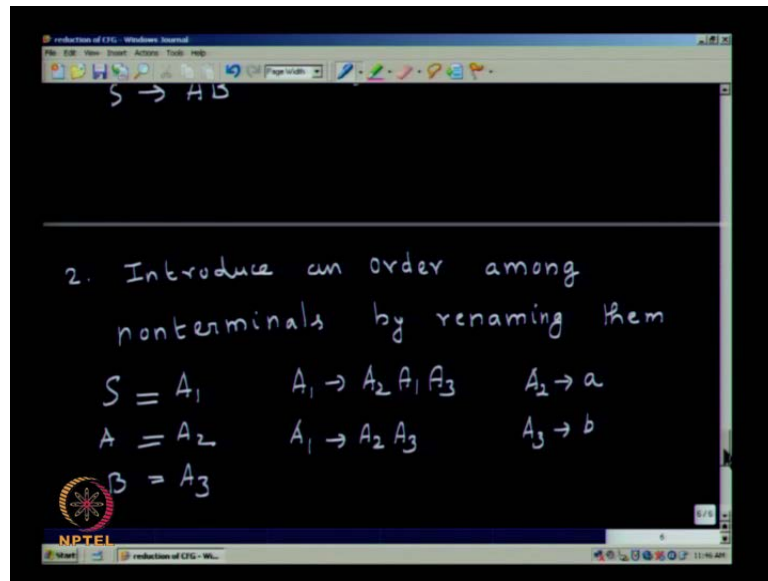 reduction of CFG - Windows Journal
File Edit View Insert Actions Tools Help
Page Width
S → AB
2. Introduce an order among
nonterminals by renaming them
S = A₁ A₁ → A₂ A₁ A₃ A₂ → a
A = A₂ A₁ → A₂ A₃ A₃ → b
B = A₃
NPTEL
6/6
6
Start reduction of CFG - Wi... 11:46 AM